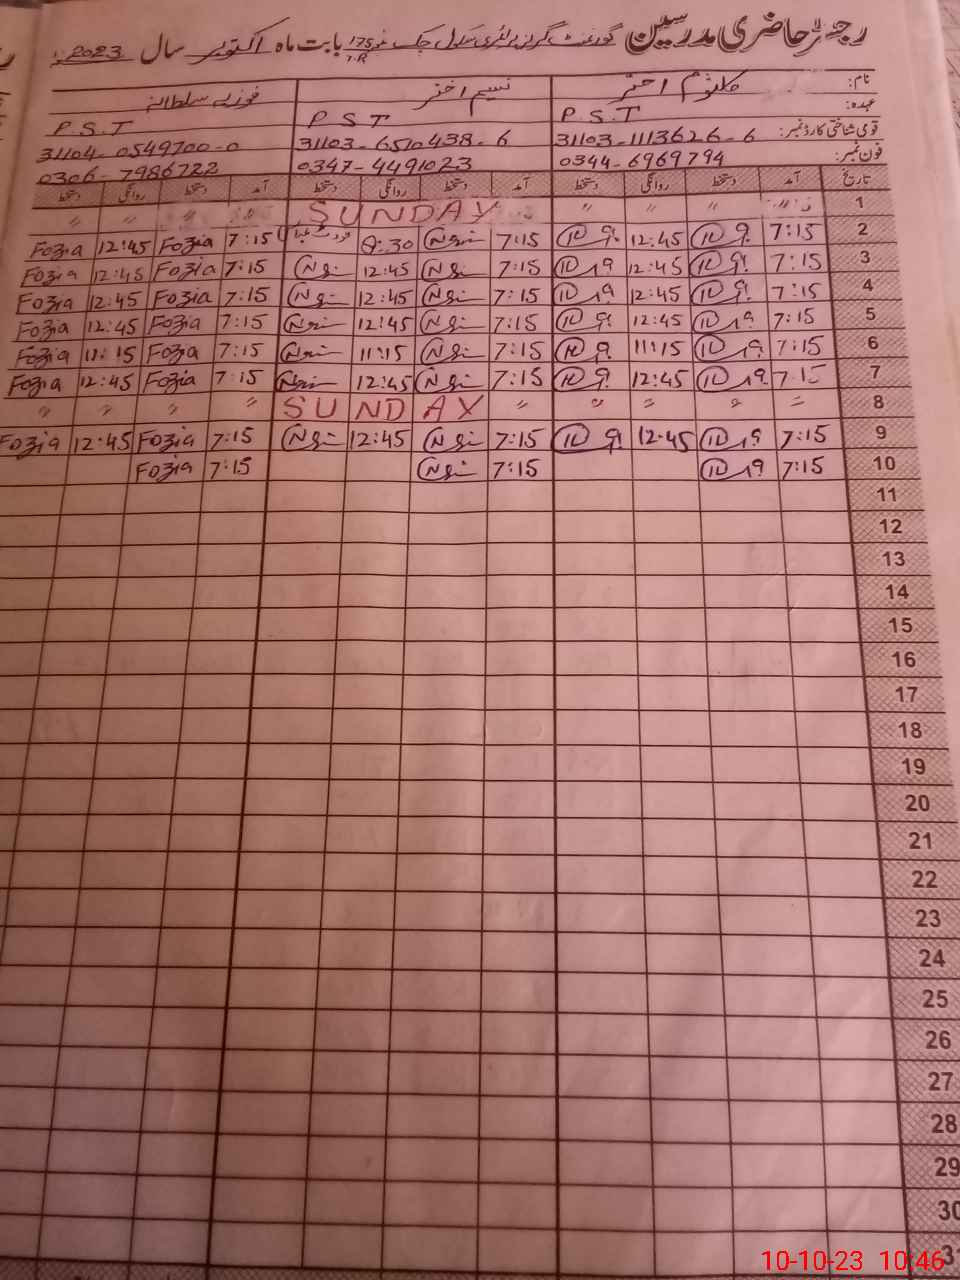 رجسٹر حاضری مدرسین گورنمنٹ گرلز پرائمری سکول چک نمبر 175 بابت ماہ اکتوبر سال 2023
نام: کلثوم اختر نسیم اختر فوزیہ سلطانہ
عہدہ: P.S.T P S T P.S.T
قومی شناختی کارڈ نمبر: 31103-1113626-6 31103-6510438-6 31104-0549700-0
فون نمبر: 0344-6969794 0347-4491023 0306-7986722
تاریخ آمد دستخط روانگی دستخط آمد دستخط روانگی دستخط آمد دستخط روانگی دستخط
1 " " " SUNDAY " " "
2 7:15 12:45 7:15 8:30 7:15 Fozia 12:45 Fozia
3 7:15 12:45 7:15 12:45 7:15 Fozia 12:45 Fozia
4 7:15 12:45 7:15 12:45 7:15 Fozia 12:45 Fozia
5 7:15 12:45 7:15 12:45 7:15 Fozia 12:45 Fozia
6 7:15 11:15 7:15 11:15 7:15 Fozia 11:15 Fozia
7 7:15 12:45 7:15 12:45 7:15 Fozia 12:45 Fozia
8 " " " " " SUNDAY " " " "
9 7:15 12:45 7:15 12:45 7:15 Fozia 12:45 Fozia
10 7:15 7:15 7:15 Fozia
11
12
13
14
15
16
17
18
19
20
21
22
23
24
25
26
27
28
29
30
31
10-10-23 10:46